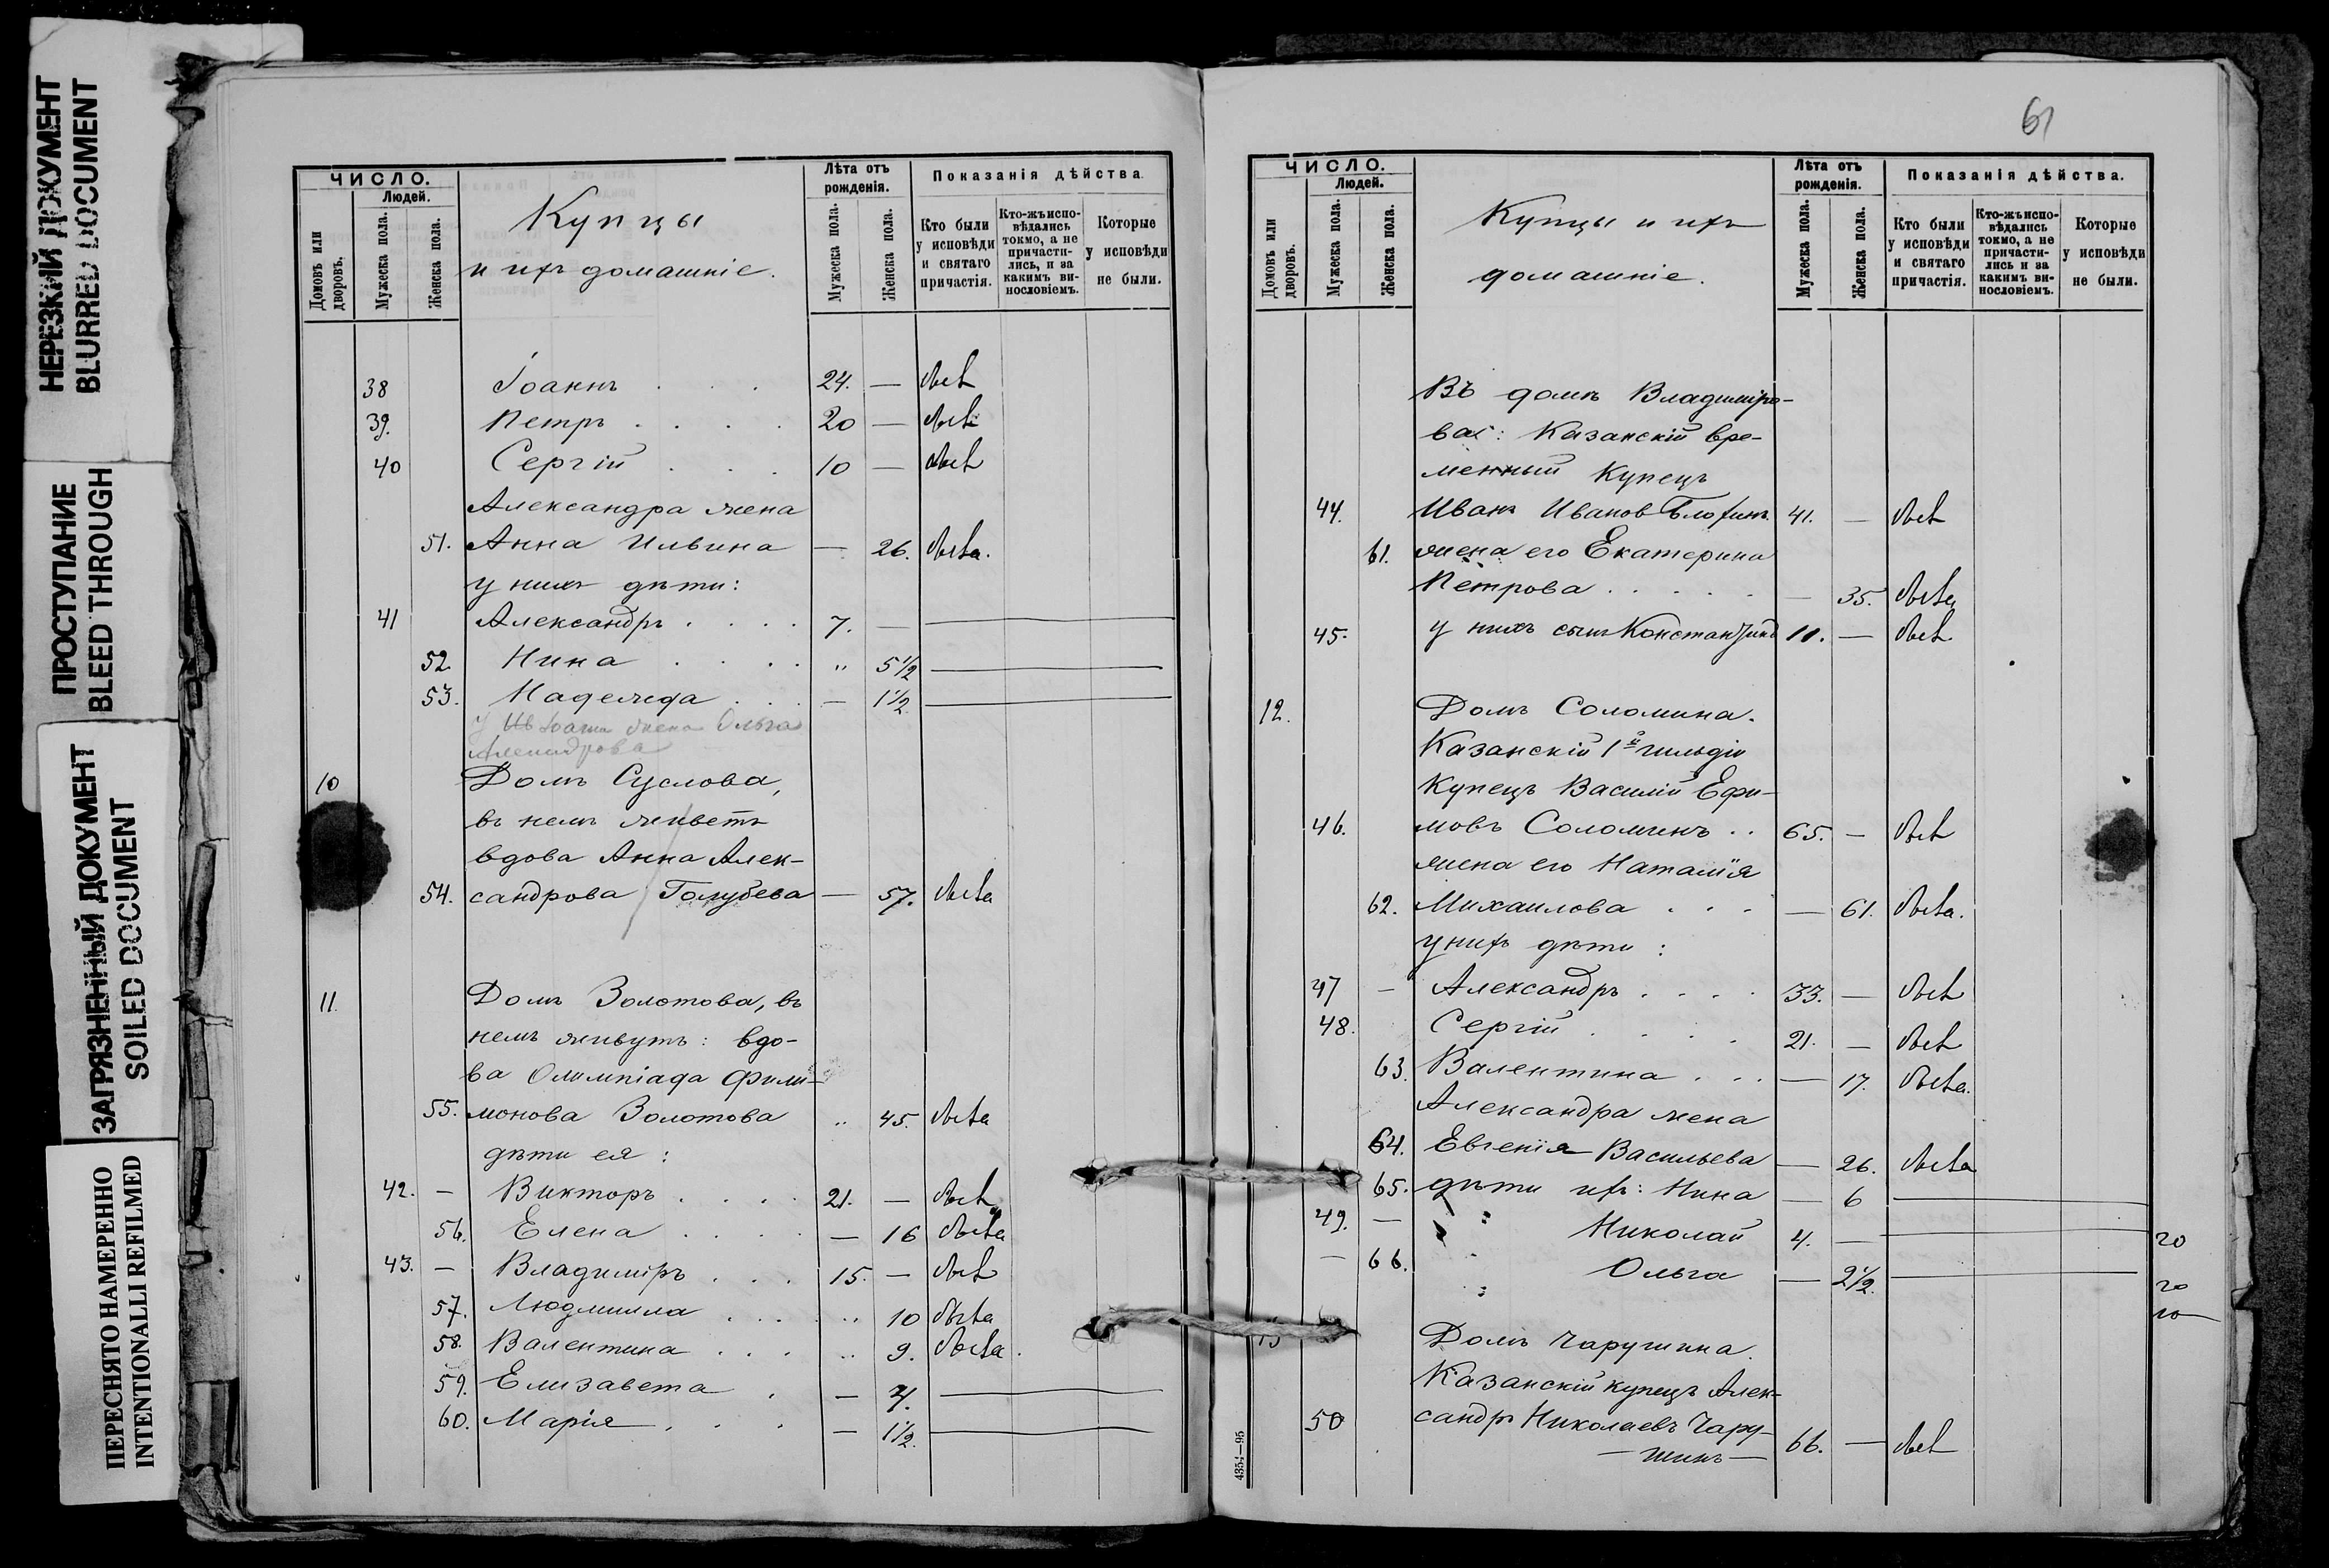 НЕРЕЗКИЙ ДОКУМЕНТ
BLURRED DOCUMENT
ПРОСТУПАНИЕ
BLEED THROUGH
ЗАГРЯЗНЕННЫЙ ДОКУМЕНТ
SOILED DOCUMENT
ПЕРЕСНЯТО НАМЕРЕННО
INTENTIONALLI REFILMED
ЧИСЛО.
Людей.
Домовъ или дворовъ.
Мужеска пола.
Женска пола.
Купцы
и ихъ домашніе.
Лѣта отъ рожденія.
Мужеска пола.
Женска пола.
Показанія дѣйства.
Кто были у исповѣди и святаго причастія.
Кто-жъ исповѣдались токмо, а не причастились, и за какимъ винословіемъ.
Которые у исповѣди не были.
38 Іоаннъ . . . 24. — былъ
39. Петръ . . . . 20 — былъ
40 Сергій . . . 10 — былъ
Александра жена
51. Анна Ильина — 26. была.
у нихъ дѣти:
41 Александръ . . . . 7. —
52. Нина . . . . „ 5 1/2
53. Надежда . . . — 1 1/2
жена Ольга
10 Домъ Суслова,
въ немъ живетъ
вдова Анна Алек-
54. сандрова Голубева — 57. была
11. Домъ Золотова, въ
немъ живутъ: вдо-
ва Олимпіада Фили-
55. монова Золотова „ 45. была
дѣти ея:
42. — Викторъ . . . . 21. — былъ
56. Елена . . . . — 16 была
43. — Владиміръ . . . 15. — былъ
57. Людмила . . . „ 10 была
58. Валентина . . . „ 9. была.
59. Елизавета . —
60. Марія . . . — 1 1/2.
61
ЧИСЛО.
Людей.
Домовъ или дворовъ.
Мужеска пола.
Женска пола.
Купцы и ихъ
домашніе.
Лѣта отъ рожденія.
Мужеска пола.
Женска пола.
Показанія дѣйства.
Кто были у исповѣди и святаго причастія.
Кто-жъ исповѣдались токмо, а не причастились и за какимъ винословіемъ.
Которые у исповѣди не были.
Въ домѣ Владиміро-
вах: Казанскій вре-
менный купецъ
44. Иванъ Иванов 41. — былъ
61. жена его Екатерина
Петрова . . . . . — 35. была
45. у нихъ сынъ Константинъ 11. — былъ
12. Домъ Соломина.
Казанскій 1й гильдіи
Купецъ Василій Ефи-
46. мовъ Соломинъ . . 65. — былъ
жена его Наталія
62. Михаилова . . . — 61. была.
у нихъ дѣти:
47 — Александръ . . . . 33. — былъ
48. Сергій . . . . 21. — былъ
63. Валентина . . . — 17. была.
Александра жена
64. Евгенія Васильева — 26. была
65. дѣти ихъ: Нина — 6
49. — „ Николай 4. —
— 66. „ Ольга — 2 1/2.
20
20
20
13 Домъ Чарушина.
Казанскій купецъ Алек-
50 сандръ Николаевъ Чару-
— шинъ — 66. — былъ
4354—95